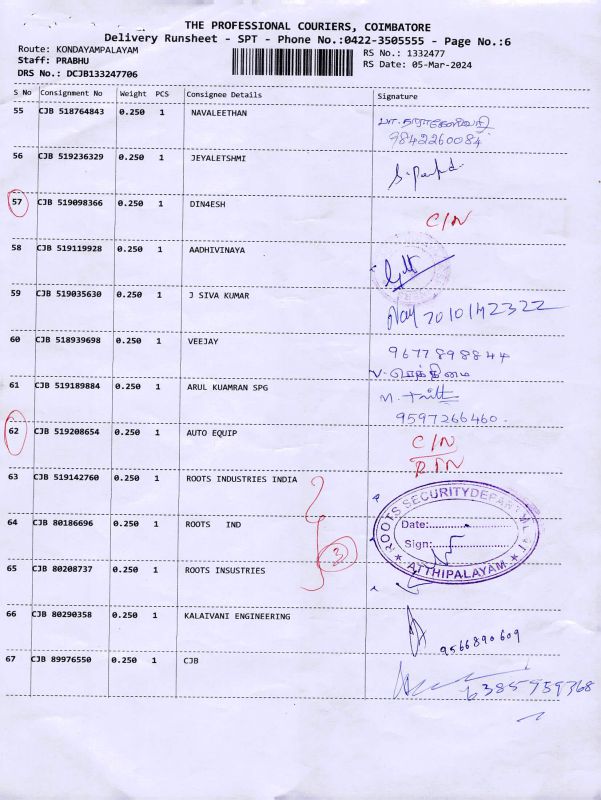 THE PROFESSIONAL COURIERS, COIMBATORE
Delivery Runsheet - SPT - Phone No.:0422-3505555 - Page No.:6
Route: KONDAYAMPALAYAM
RS No.: 1332477
Staff: PRABHU
RS Date: 05-Mar-2024
DRS No.: DCJB133247706
S No Consignment No Weight PCS Consignee Details Signature
55 CJB 518764843 0.250 1 NAVALEETHAN
9842260084
56 CJB 519236329 0.250 1 JEYALETSHMI
57 CJB 519098366 0.250 1 DIN4ESH
C/N
58 CJB 519119928 0.250 1 AADHIVINAYA
59 CJB 519035630 0.250 1 J SIVA KUMAR
60 CJB 518939698 0.250 1 VEEJAY
9677898844
61 CJB 519189884 0.250 1 ARUL KUAMRAN SPG
9597266460.
62 CJB 519208654 0.250 1 AUTO EQUIP
C/N
RTN
63 CJB 519142760 0.250 1 ROOTS INDUSTRIES INDIA
ROOTS SECURITY DEPARTMENT
64 CJB 80186696 0.250 1 ROOTS IND
Date:
3
Sign:
65 CJB 80208737 0.250 1 ROOTS INSUSTRIES
ATTHIPALAYAM
66 CJB 80290358 0.250 1 KALAIVANI ENGINEERING
9566890609
67 CJB 89976550 0.250 1 CJB
6385959368